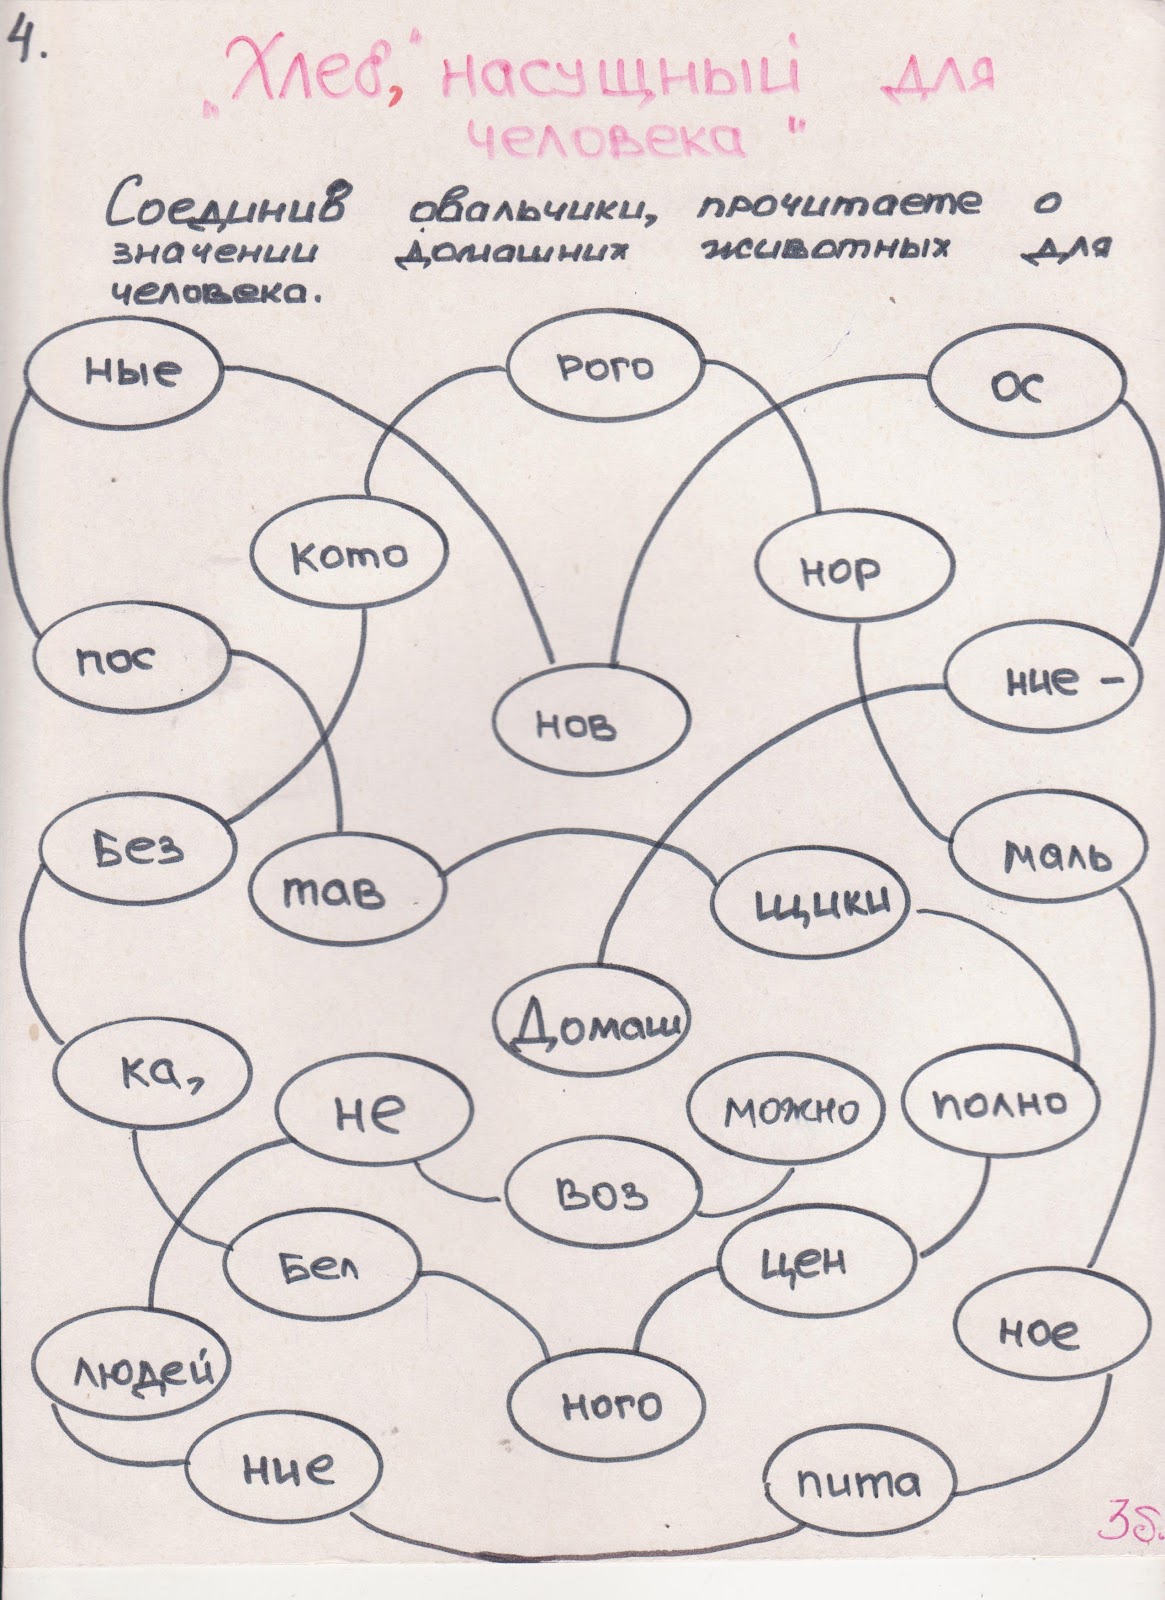 4.
"Хлев," насущный для
человека"
Соединив овальчики, прочитаете о
значении домашних животных для
человека.
ные
рого
ос
кото
нор
пос
ние -
нов
Без
маль
тав
щики
Домаш
ка,
не
можно
полно
воз
Бел
цен
ное
людей
ного
ние
пита
3б.